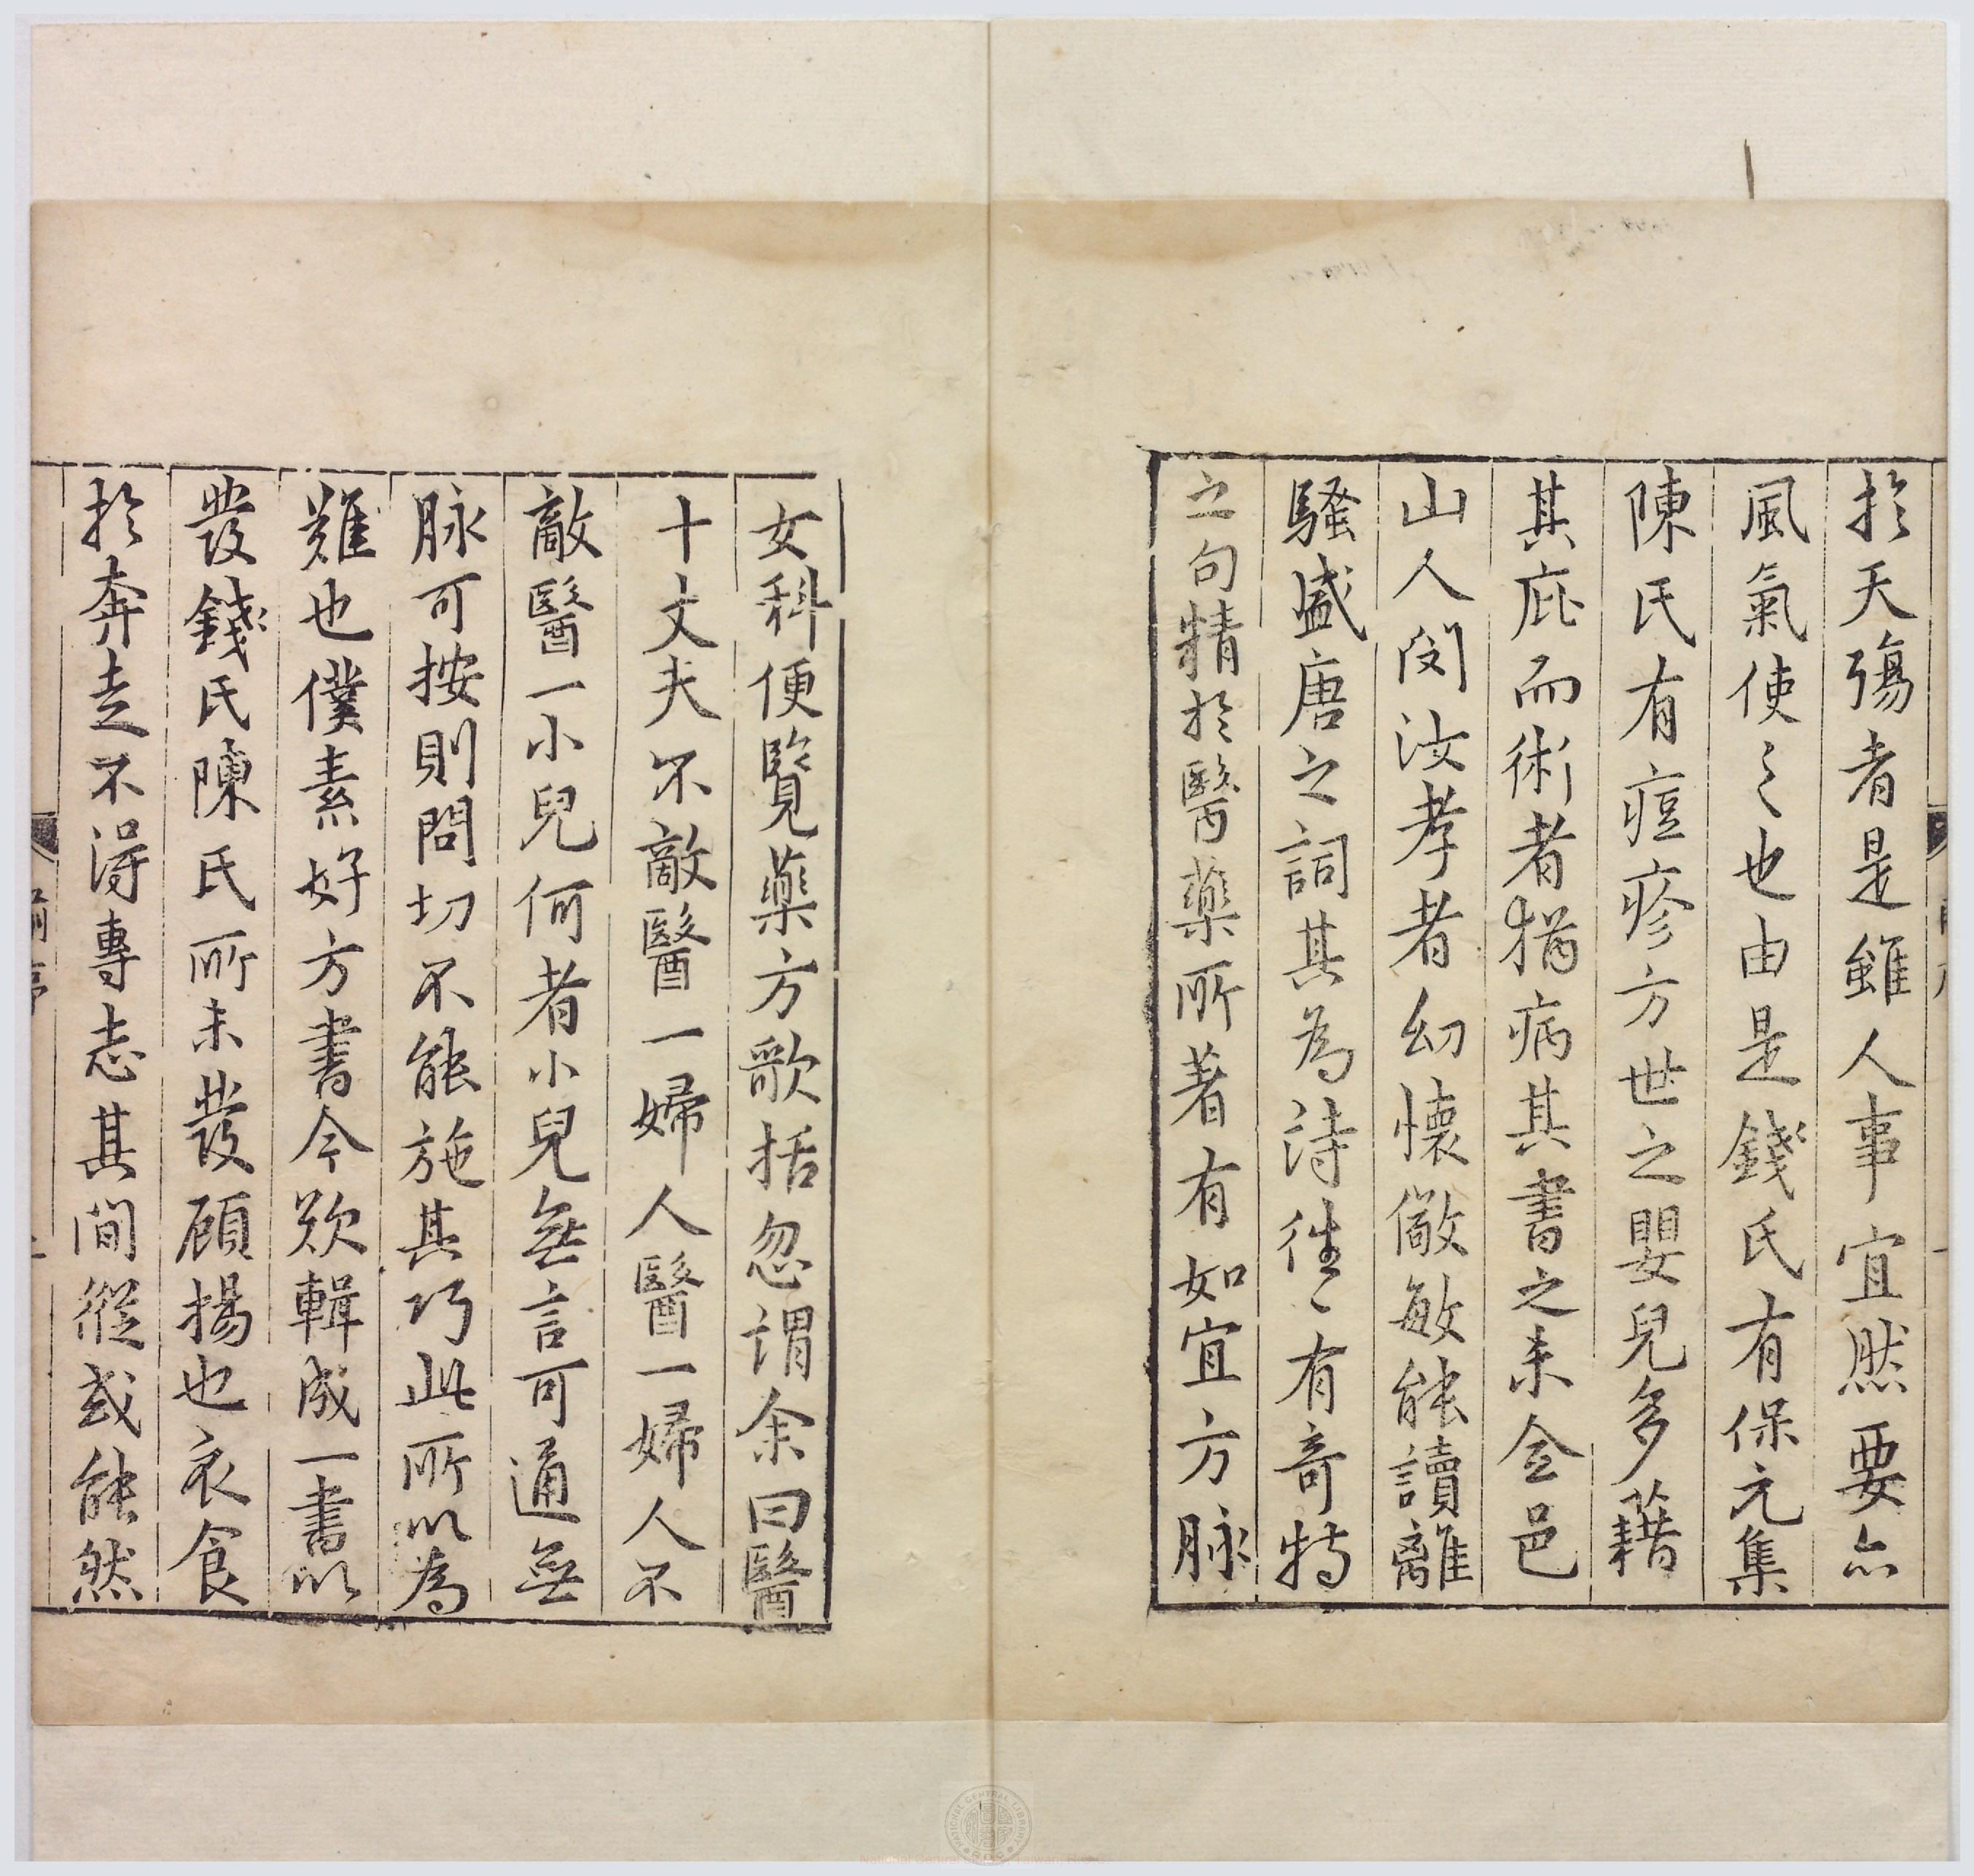 扵夭殤者是雖人事宜然要亦
風氣使之也由是錢氏有保元集
陳氏有痘疹方世之嬰兒多藉
其庇而術者猶病其書之未全邑
山人閔汝孝者幼懷儆敏能讀離
騷盛唐之詞其為詩徃〻有奇特
之句精扵醫藥所著有如宜方脉
女科便覽藥方歌括忽謂余曰醫
十丈夫不敵醫一婦人醫一婦人不
敵醫一小兒何者小兒無言可通無
脉可按則問切不能施其巧此所以為
難也僕素好方書今欲輯成一書以
發錢氏陳氏所未發顧揚也衣食
扵奔走不得專志其間縱或能然